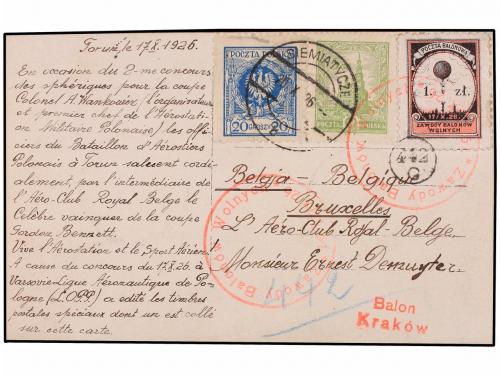 Toruń, le 17.X.1926.
En occasion du 2-me concours
des sphériques pour la coupe
Colonel A. Wańkowicz, l'organisateur
et premier chef de l'Aérostation
Militaire Polonaise, les offi-
ciers du Bataillon d'Aérostiers
Polonais à Toruń saluent cordi-
alement, par l'intermédiaire de
l'Aéro-Club Royal Belge le
Célèbre vainqueur de la coupe
Gordon Bennett.
Vive l'Aérostation et le Sport Aérien!
A cause du concours du 17.X.26. à
Varsovie Ligue Aéronautique de Po-
logne (L.O.P.P.) a édité les timbres
postales spéciaux dont un est collé
sur cette carte.
POCZTA POLSKA
20 GROSZY 20
SIEMIATYCZE
POCZTA BALONOWA
1 zł.
17/X.26.
ZAWODY BALONÓW
WOLNYCH
Zawody Balonów Wolnych
Belgja - Belgique
Bruxelles
L'Aéro-Club Royal-Belge
Monsieur Ernest Demuyter
Balon
Kraków